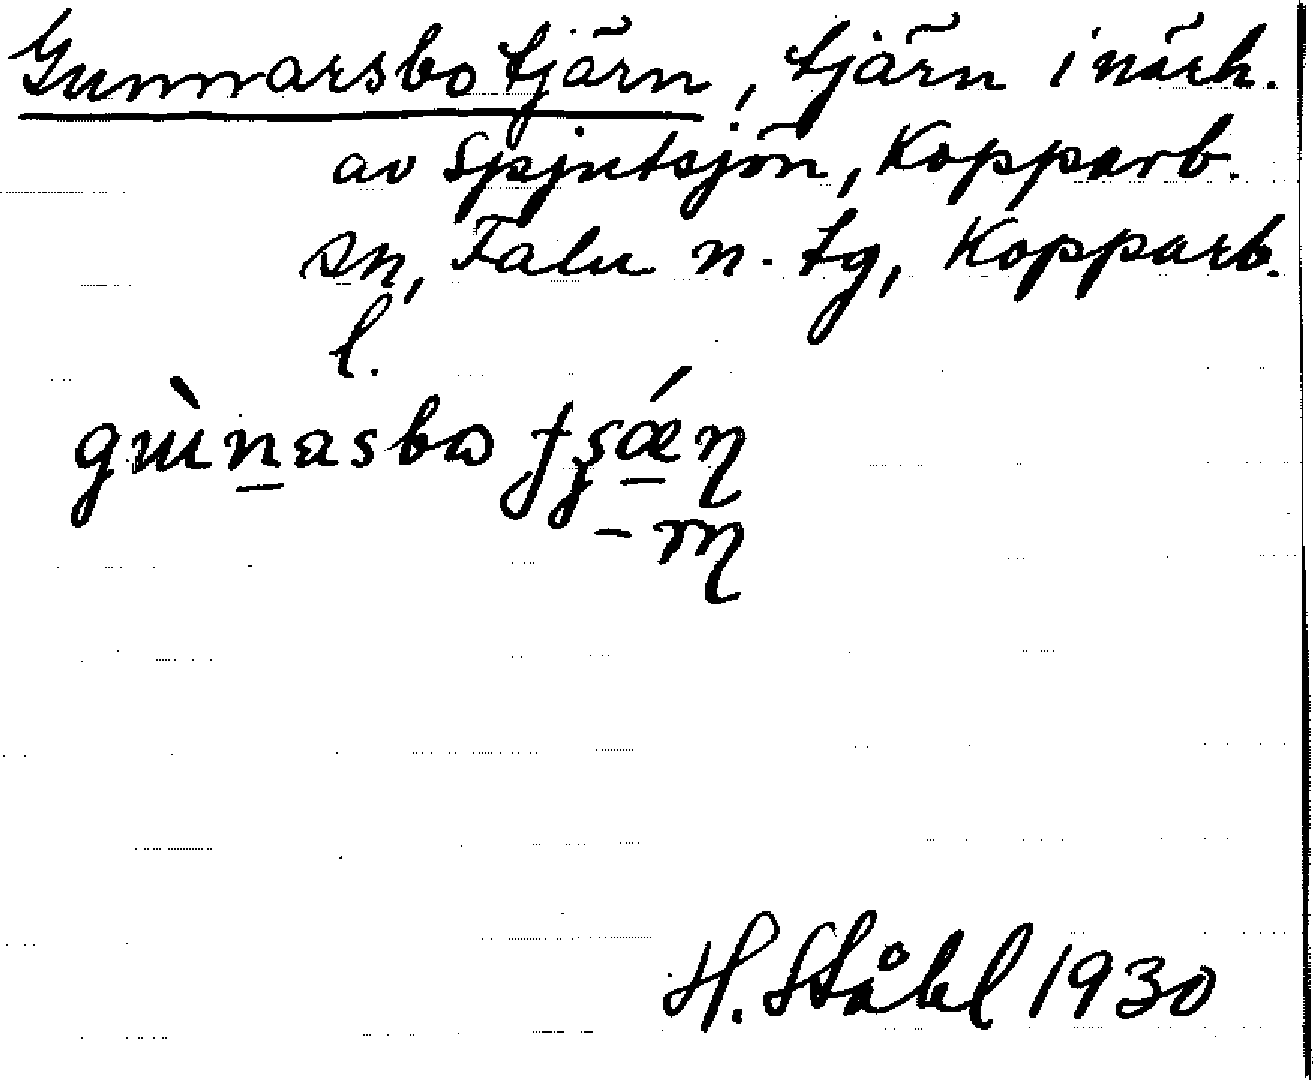 Gunnarsbotjärn, tjärn i närh.
av Spjutsjön, Kopparb.
sn, Falu n. tg, Kopparb.
l.
H. Ståhl 1930